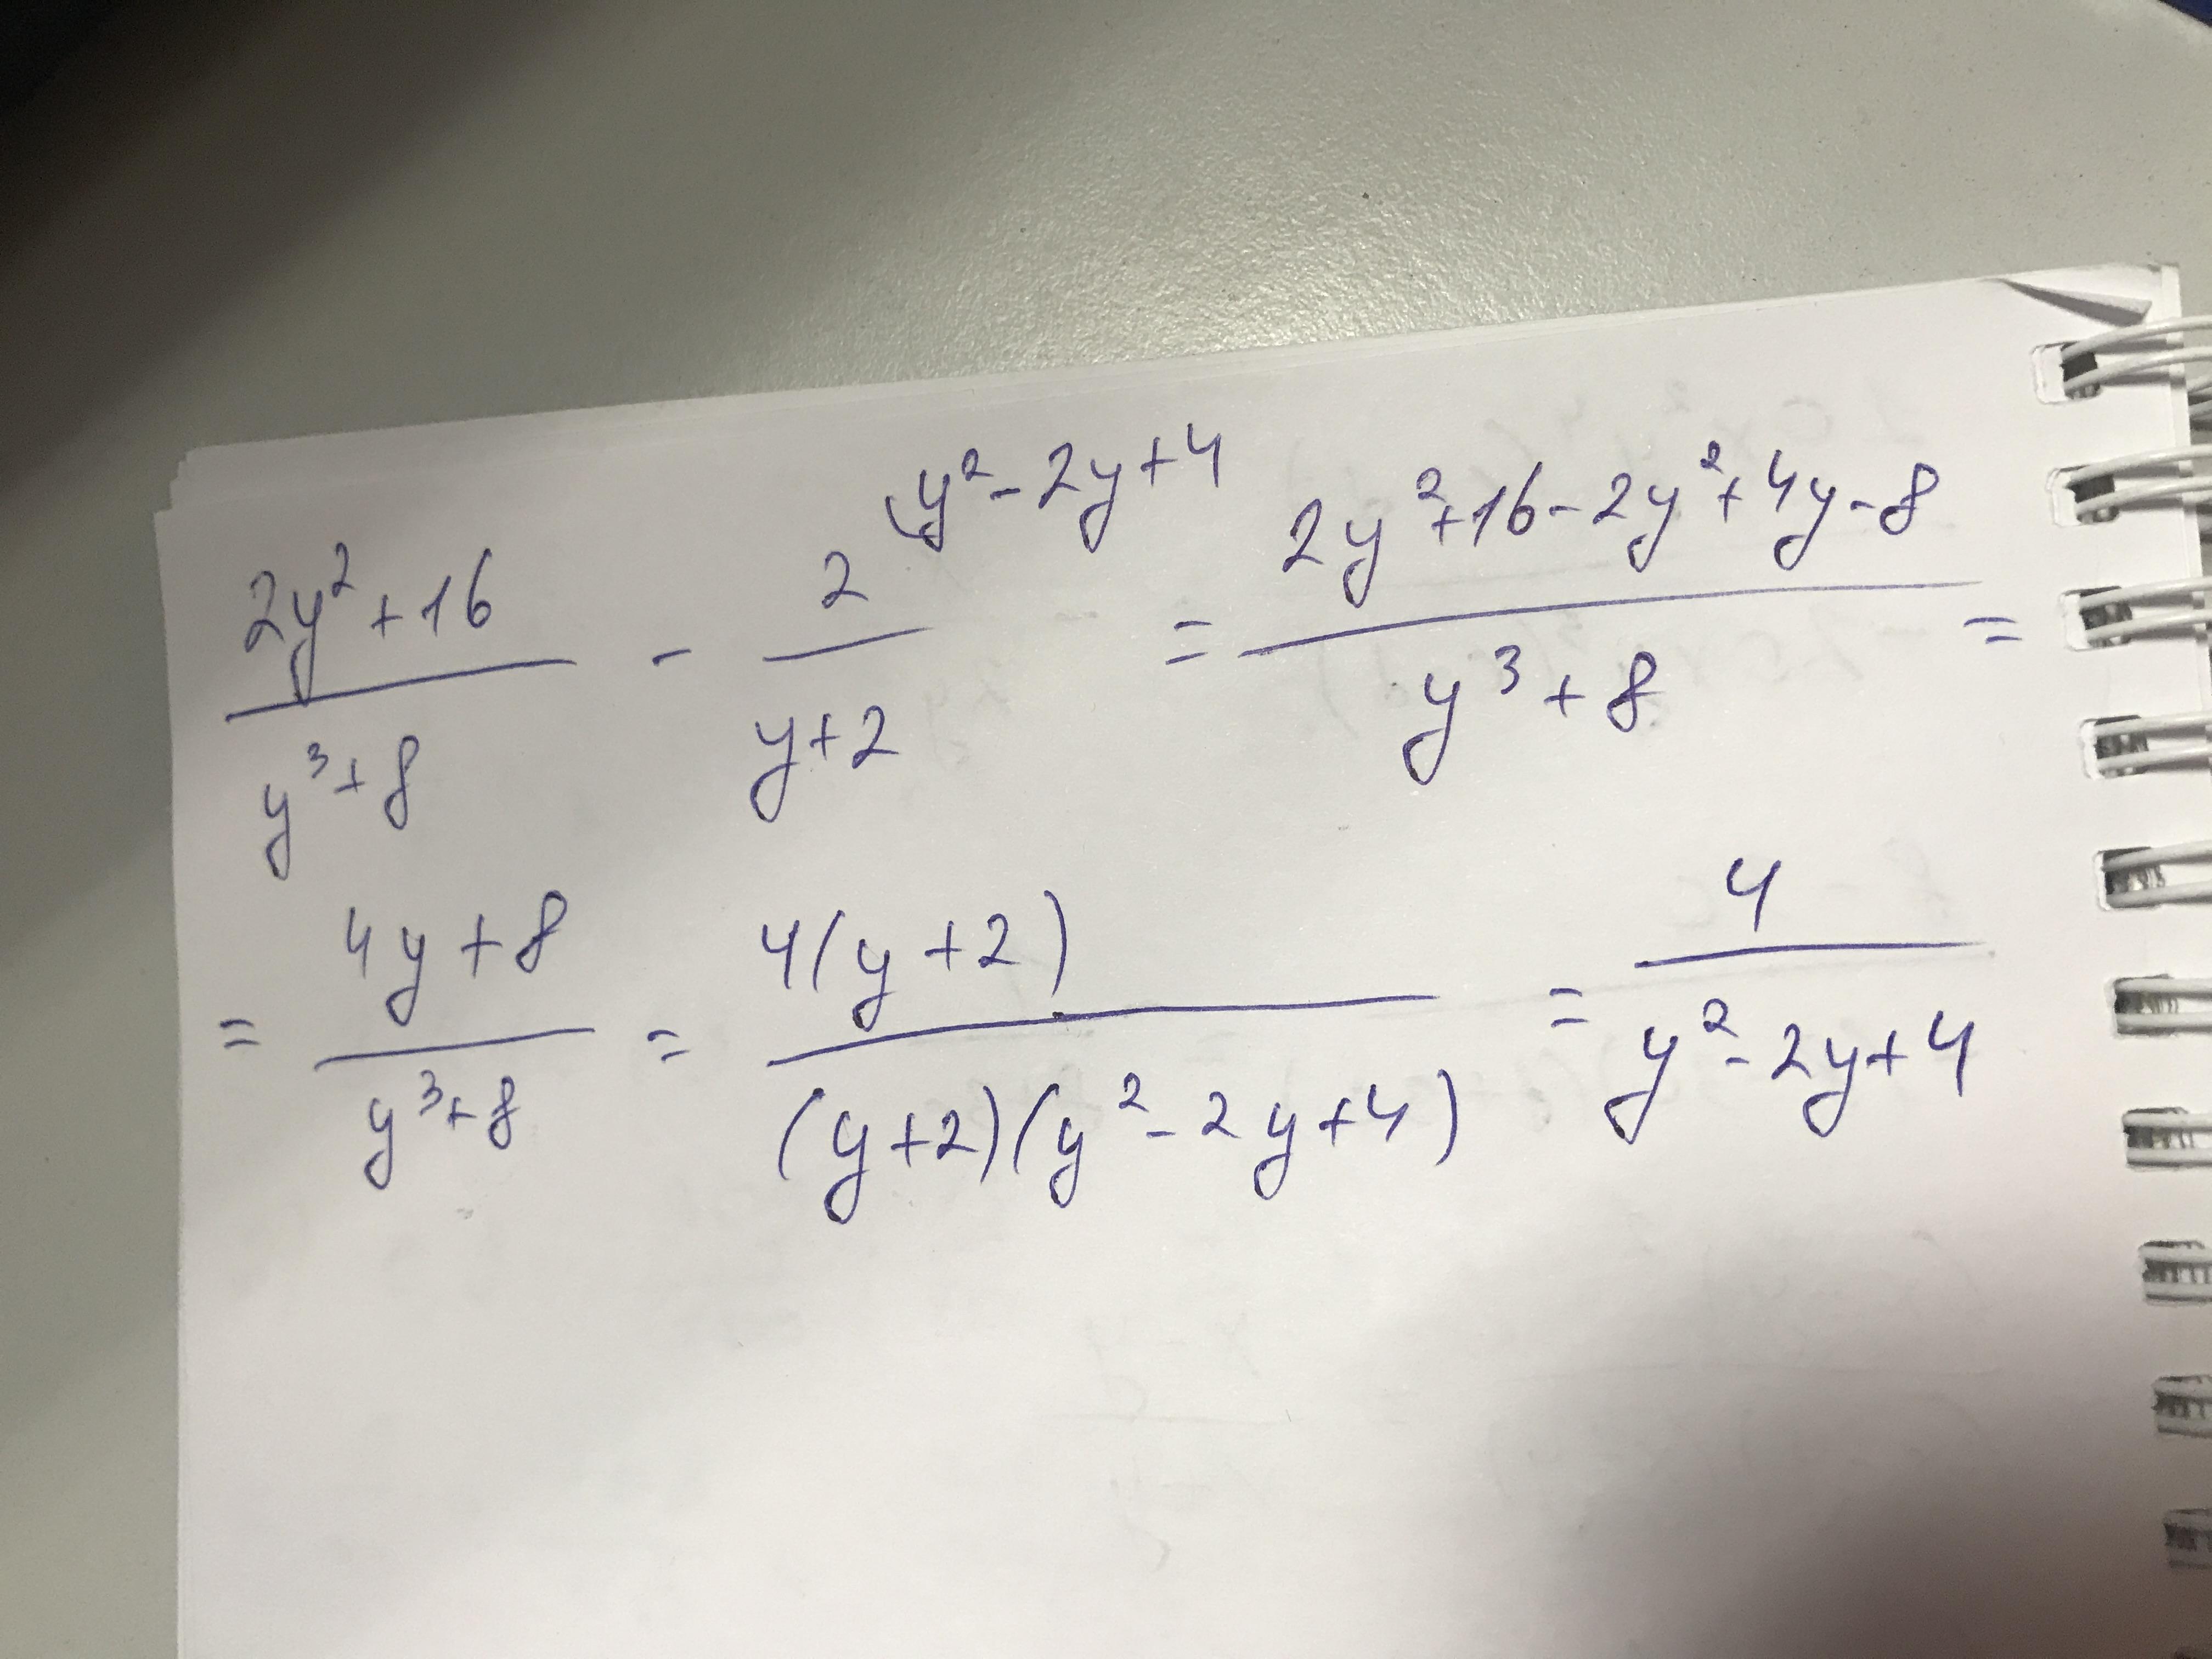 (2y²+16)/(y³+8) - 2/(y+2) ⟍y²-2y+4 = (2y²+16-2y²+4y-8)/(y³+8) =
= (4y+8)/(y³+8) = 4(y+2)/((y+2)(y²-2y+4)) = 4/(y²-2y+4)